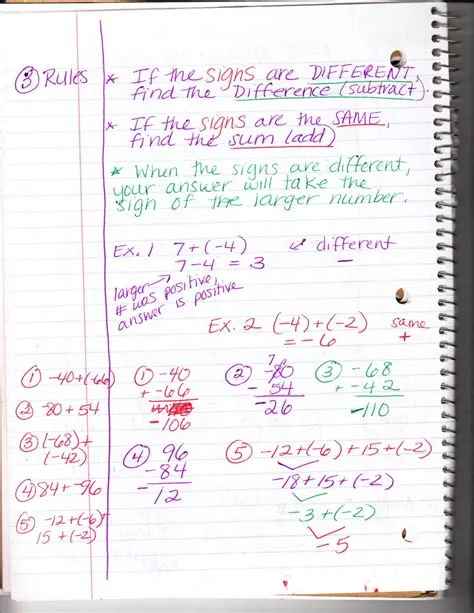 ③ Rules * If the signs are DIFFERENT,
find the Difference (subtract).
* If the signs are the SAME,
find the sum (add)
* When the signs are different,
your answer will take the
sign of the larger number.
Ex. 1 7+(-4) different
7-4 = 3 -
larger
# was positive,
answer is positive
Ex. 2 (-4)+(-2) same
= -6 +
① -40+(-66)
② -80+54
③ (-68)+
(-42)
④ 84+-96
⑤ -12+(-6)+
15+(-2)
① -40
+-66
-106
② 7
-80
-54
-26
③ -68
+-42
-110
④ 96
-84
-12
⑤ -12+(-6)+15+(-2)
-18+15+(-2)
-3+(-2)
-5